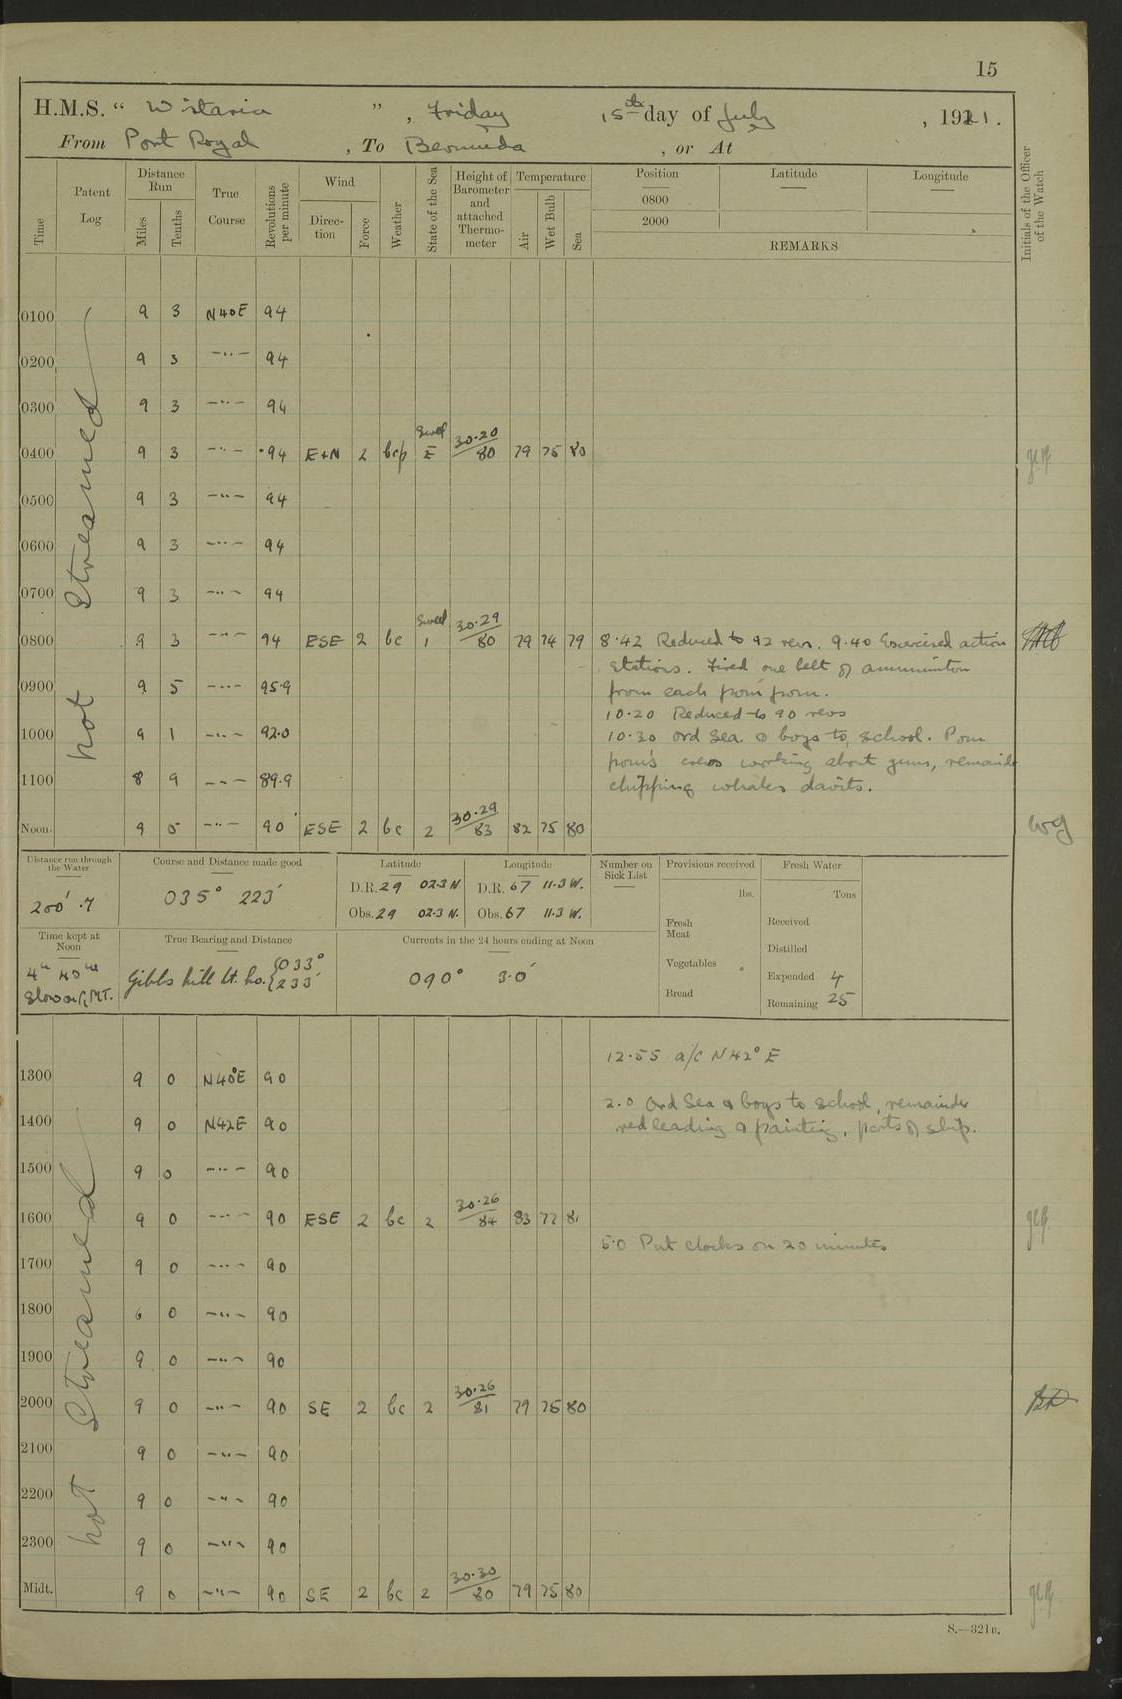 15
H.M.S. " Wistaria " , Friday 15th day of July , 1921.
From Port Royal , To Bermuda , or At
Time Patent Log Distance Run Miles Tenths True Course Revolutions per minute Wind Direc-tion Force Weather State of the Sea Height of Barometer and attached Thermo-meter Temperature Air Wet Bulb Sea Position Latitude Longitude Initials of the Officer of the Watch
0800
2000
REMARKS
not streamed
0100 9 3 N40E 94
0200 9 3 —"— 94
0300 9 3 —"— 94
0400 9 3 —"— 94 E+N 2 bcp Swell E 30.20/80 79 75 80
0500 9 3 —"— 94
0600 9 3 —"— 94
0700 9 3 —"— 94
0800 9 3 —"— 94 ESE 2 bc Swell 1 30.29/80 79 74 79 8.42 Reduced to 92 revs. 9.40 Exercised action
stations. Fired one belt of ammuniton
0900 9 5 —"— 95.9 from each pom pom.
10.20 Reduced to 90 revs
1000 9 1 —"— 92.0 10.30 Ord Sea. & boys to school. Pom
pom's crews working about guns, remainder
1100 8 9 —"— 89.9 chipping whalers davits.
Noon 9 0 —"— 90 ESE 2 bc 2 30.29/83 82 75 80 WG
Distance run through the Water 200'.7
Course and Distance made good 035° 223'
Latitude D.R. 29 02.3 N Obs. 29 02.3 N.
Longitude D.R. 67 11.3 W. Obs. 67 11.3 W.
Number on Sick List
Provisions received lbs.
Fresh Meat
Vegetables
Bread
Fresh Water Tons
Received
Distilled
Expended 4
Remaining 25
Time kept at Noon slow on G.M.T.
True Bearing and Distance Gibbs hill Lt. ho. {033° 233'
Currents in the 24 hours ending at Noon 090° 3.0'
not streamed
12.55 a/c N42°E
1300 9 0 N40°E 90
2.0 Ord Sea & boys to school, remainder
1400 9 0 N42E 90 redleading & painting, parts of ship.
1500 9 0 —"— 90
1600 9 0 —"— 90 ESE 2 bc 2 30.26/84 83 77 81
5.0 Put clocks on 20 minutes
1700 9 0 —"— 90
1800 9 0 —"— 90
1900 9 0 —"— 90
2000 9 0 —"— 90 SE 2 bc 2 30.26/81 79 75 80
2100 9 0 —"— 90
2200 9 0 —"— 90
2300 9 0 —"— 90
Midt. 9 0 —"— 90 SE 2 bc 2 30.30/80 79 75 80
S.—321B.